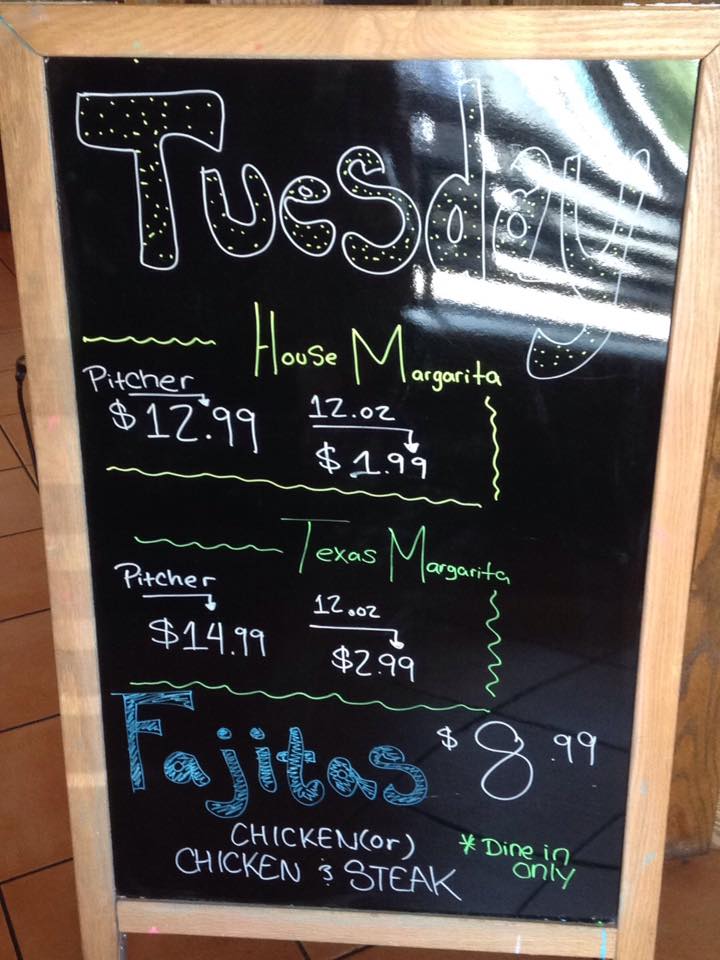 Tuesday
House Margarita
Pitcher 12.oz
$12.99 $1.99
Texas Margarita
Pitcher 12.oz
$14.99 $2.99
Fajitas $8.99
CHICKEN(or)
CHICKEN & STEAK
* Dine in
only